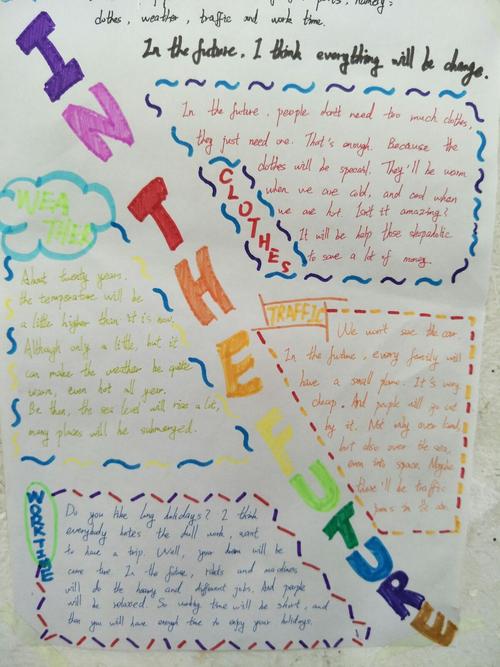 clothes, weather, traffic and work time.
In the future. I think everything will be change.
IN THE FUTURE
CLOTHES
In the future, people don't need too much clothes,
they just need one. That's enough. Because the
clothes will be special. They'll be warm
when we are cold, and cool when
we are hot. Isn't it amazing?
It will be help those shopaholic
to save a lot of money.
WEA
THER
About twenty years.
the temperature will be
a little higher than it is now.
Although only a little, but it
can make the weather be quite
warm, even hot all year.
Be then, the sea level will rise a lot,
many places will be submerged.
TRAFFIC
We won't see the car
In the future, every family will
have a small plane. It's very
cheap. And people will go out
by it. Not only over land,
but also over the sea,
even into space. Maybe
there'll be traffic
jams in the air.
WORK TIME
Do you like long holidays? I think
everybody hates the dull work, want
to have a trip. Well, your dream will be
come true. In the future, robots and machines
will do the heavy and different jobs. And people
will be relaxed. So working time will be short, and
then you will have enough time to enjoy your holidays.